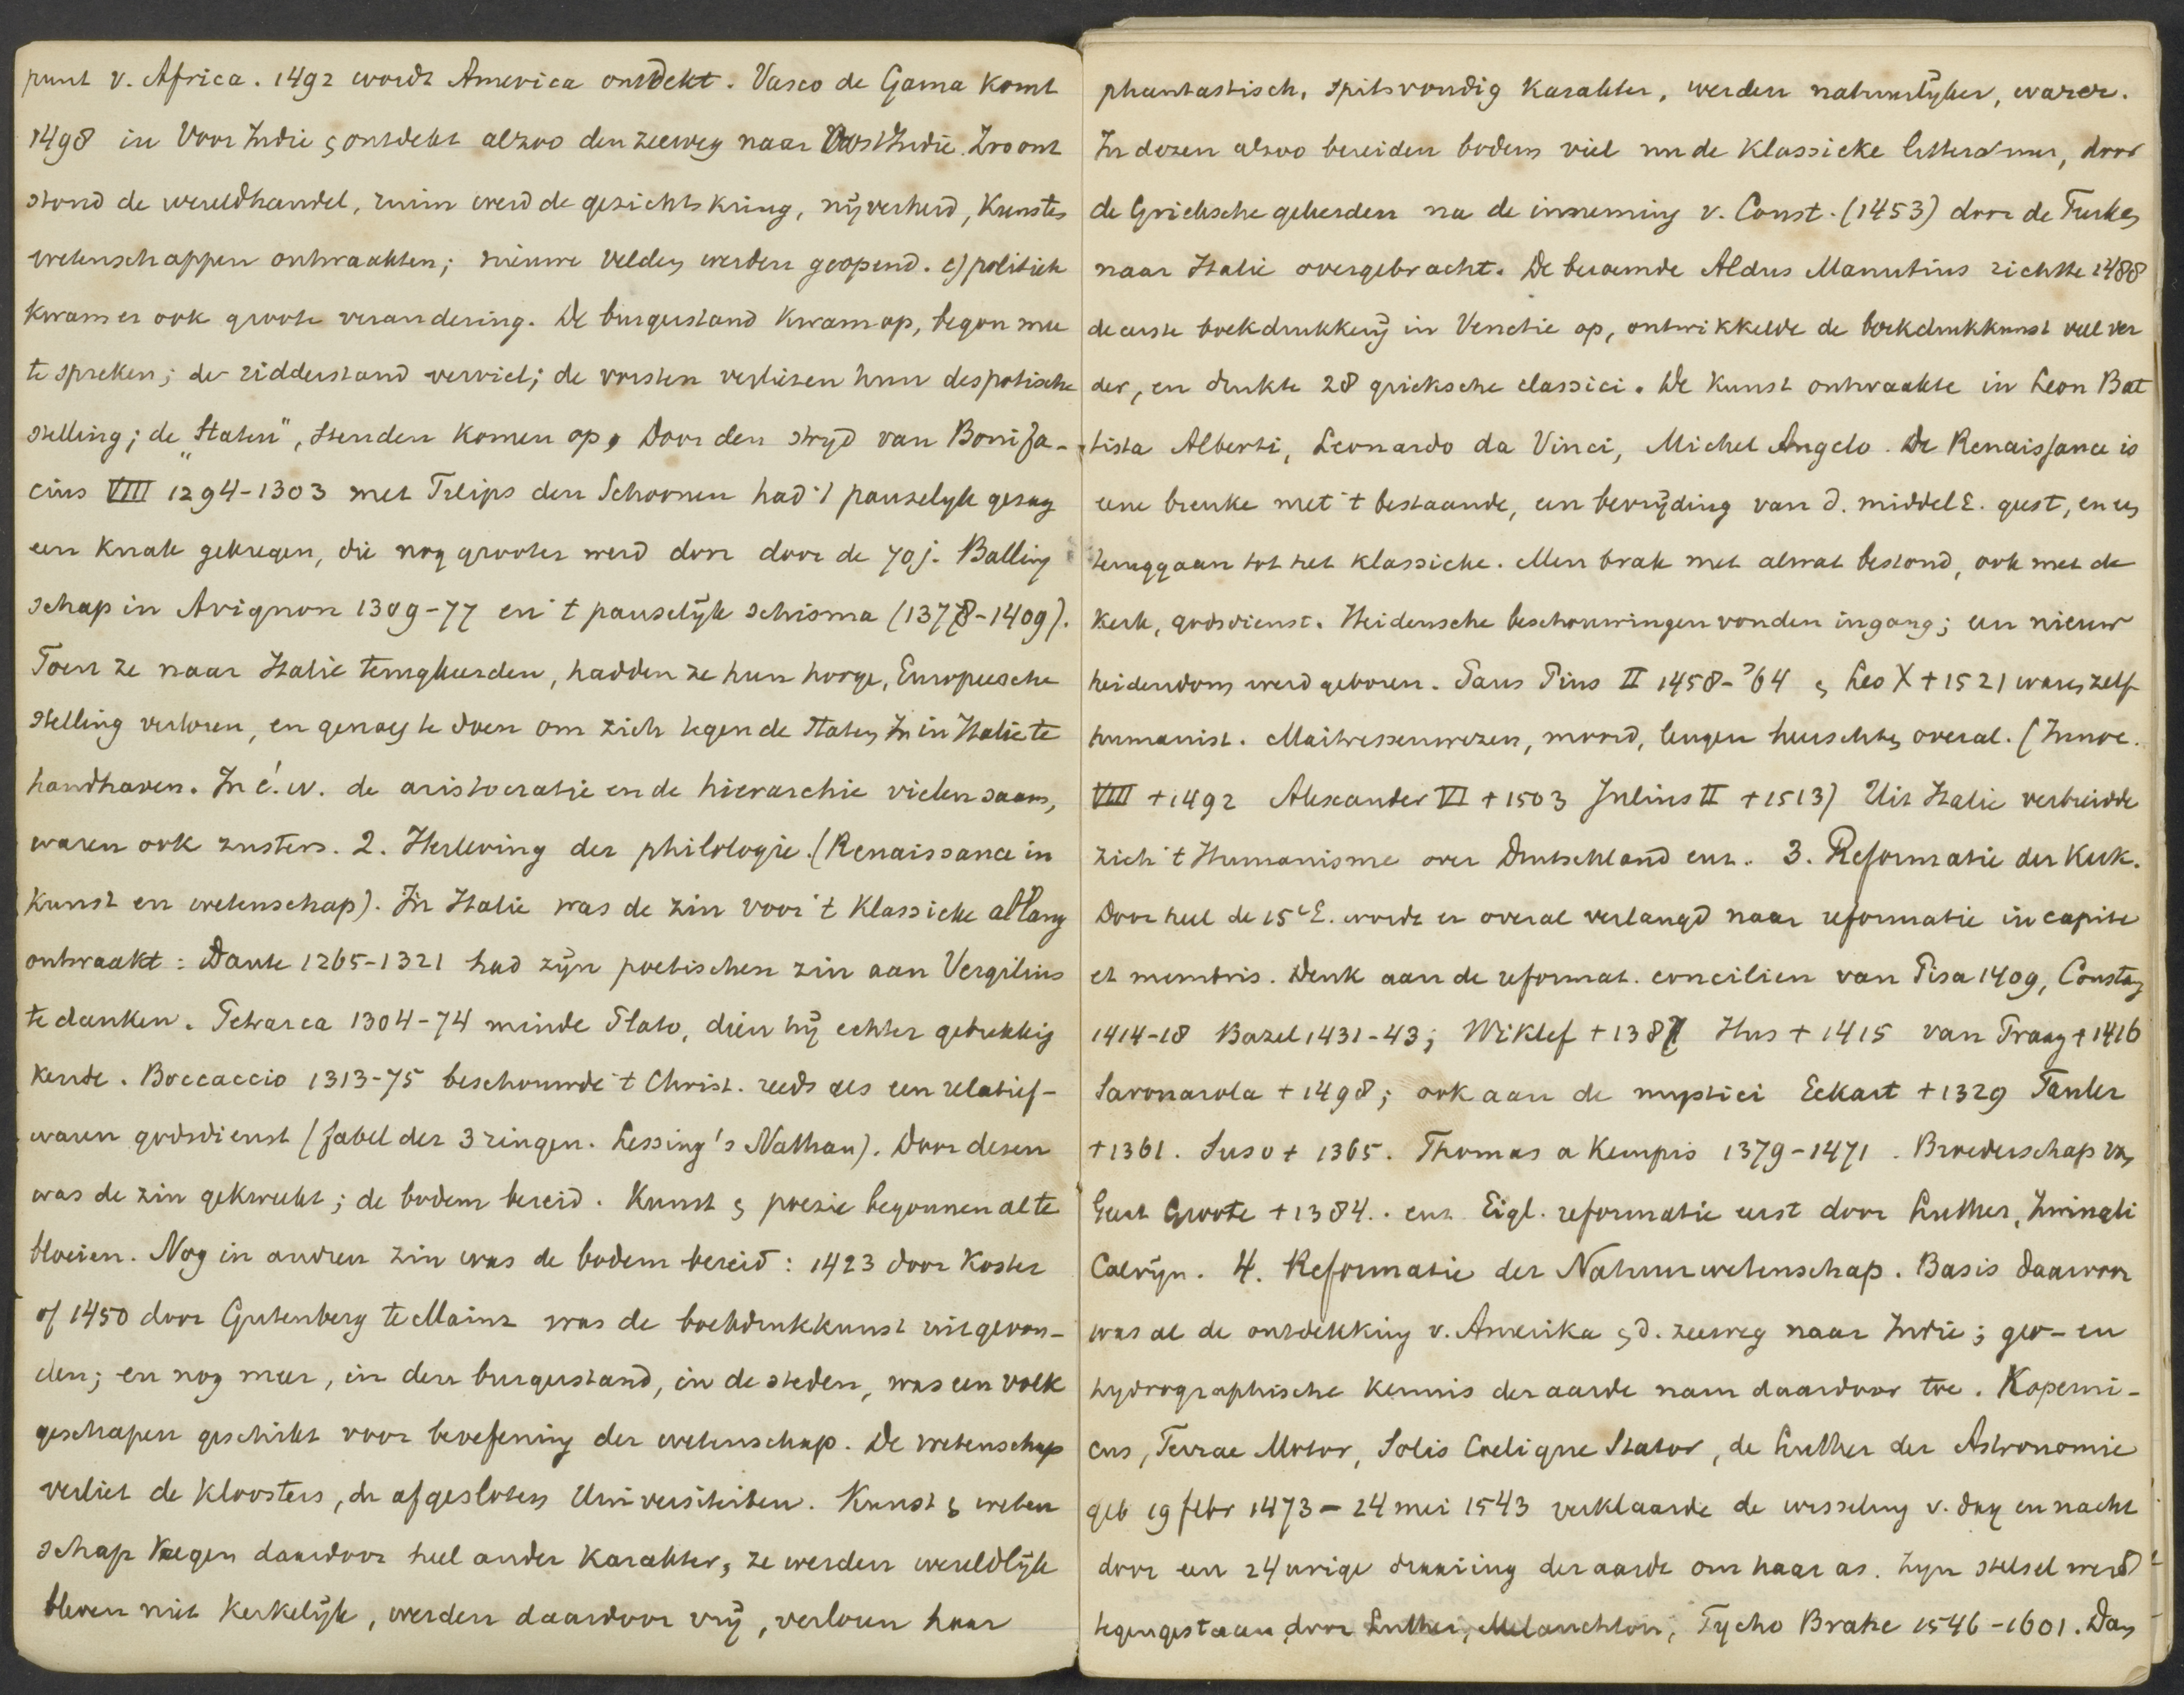 punt v. Africa. 1492 wordt America ontdekt. Vasco de Gama komt
1498 in Voor Indie & ontdekt alzoo den zeeweg naar Oost Indie. Zoo ont
stond de wereldhandel, ruim werd de gezichtskring, nijverheid, Kunsten
wetenschappen ontwaakten; nieuwe velden werden geopend. c) politiek
kwam er ook groote verandering. De burgerstand kwam op, begon mee
te spreken; de ridderstand verviel; de vorsten verliezen hun despotische
stelling; de „Staten", stenden komen op. Door den strijd van Bonifa-
cius VIII 1294-1303 met Filips den Schoonen had 't pauselijk gezag
een knak gekregen, die nog grooter werd door door de 70 j. Balling
schap in Avignon 1309-77 en 't pauselijk schisma (1378-1409).
Toen ze naar Italie terugkeerden, hadden ze hun hooge, Europeesche
stelling verloren, en genoeg te doen om zich tegen de Staten in Italie te
handhaven. In é.w. de aristocratie en de hierarchie vielen saam,
waren ook zusters. 2. Herleving der philologie. (Renaissance in
Kunst en wetenschap). In Italie was de zin voor 't Klassieke al lang
ontwaakt: Dante 1265-1321 had zijn poetischen zin aan Vergilius
te danken. Petrarca 1304-74 minde Plato, dien hij echter gebrekkig
kende. Boccaccio 1313-75 beschouwde 't Christ. reeds als een relatief-
waren godsdienst (fabel der 3 ringen. Lessing's Nathan). Door dezen
was de zin gekweekt; de bodem bereid. Kunst & poezie begonnen al te
bloeien. Nog in andren zin was de bodem bereid: 1423 door Koster
of 1450 door Gutenberg te Mainz was de boekdrukkunst uitgevon-
den; en nog meer, in den burgerstand, in de steden, was een volk
geschapen geschikt voor beoefening der wetenschap. De wetenschap
verliet de kloosters, de afgesloten Universiteiten. Kunst & weten
schap kregen daardoor heel ander karakter, ze werden wereldlijk
bleven niet kerkelijk, werden daardoor vrij, verloren haar
phantastisch, spitsvondig karakter, werden natuurlijker, warer.
In dezen alzoo bereiden bodem viel nu de Klassieke litteratuur, door
de Grieksche geleerden na de inneming v. Const. (1453) door de Turken
naar Italie overgebracht. De beroemde Aldus Manutius richtte 1488
de eerste boekdrukkerij in Venetie op, ontwikkelde de boekdrukkunst veel ver
der, en drukte 28 grieksche classici. De Kunst ontwaakte in Leon Bat
tista Alberti, Leonardo da Vinci, Michel Angelo. De Renaissance is
eene breuke met 't bestaande, een bevrijding van d. middel E. geest, en een
teruggaan tot het klassieke. Men brak met alwat bestond, ook met de
Kerk, godsdienst. Heidensche beschouwingen vonden ingang; een nieuw
heidendom werd geboren. Paus Pius II 1458-'64 & Leo X + 1521 waren zelf
humanist. Maitressenwezen, moord, leugen heerschten overal. (Innoc.
VIII + 1492 Alexander VI + 1503 Julius II + 1513) Uit Italie verbreidde
zich 't Humanisme over Deutschland enz. 3. Reformatie der Kerk.
Door heel de 15e E. wordt er overal verlangd naar reformatie in capite
et membris. Denk aan de reformat. concilien van Pisa 1409, Constanz
1414-18 Bazel 1431-43; Wiklef + 1387 Hus + 1415 van Praag + 1416
Savonarola + 1498; ook aan de mystici Eckart + 1329 Tauler
+ 1361. Suso + 1365. Thomas a Kempis 1379-1471. Broederschap van
Geert Groote + 1384. enz. Eigl. reformatie eerst door Luther, Zwingli
Calvijn. 4. Reformatie der Natuurwetenschap. Basis daarvoor
was al de ontdekking v. Amerika & d. zeeweg naar Indie; geo- en
hydrographische kennis der aarde nam daardoor toe. Koperni-
cus, Terrae Motor, Solis Coelique Stator, de Luther der Astronomie
geb 19 febr 1473 - 24 mei 1543 verklaarde de wisseling v. dag en nacht
door een 24 urige draaiing der aarde om haar as. Zijn stelsel werd
tegengestaan door Luther, Melanchton, Tycho Brahe 1546-1601. Dan